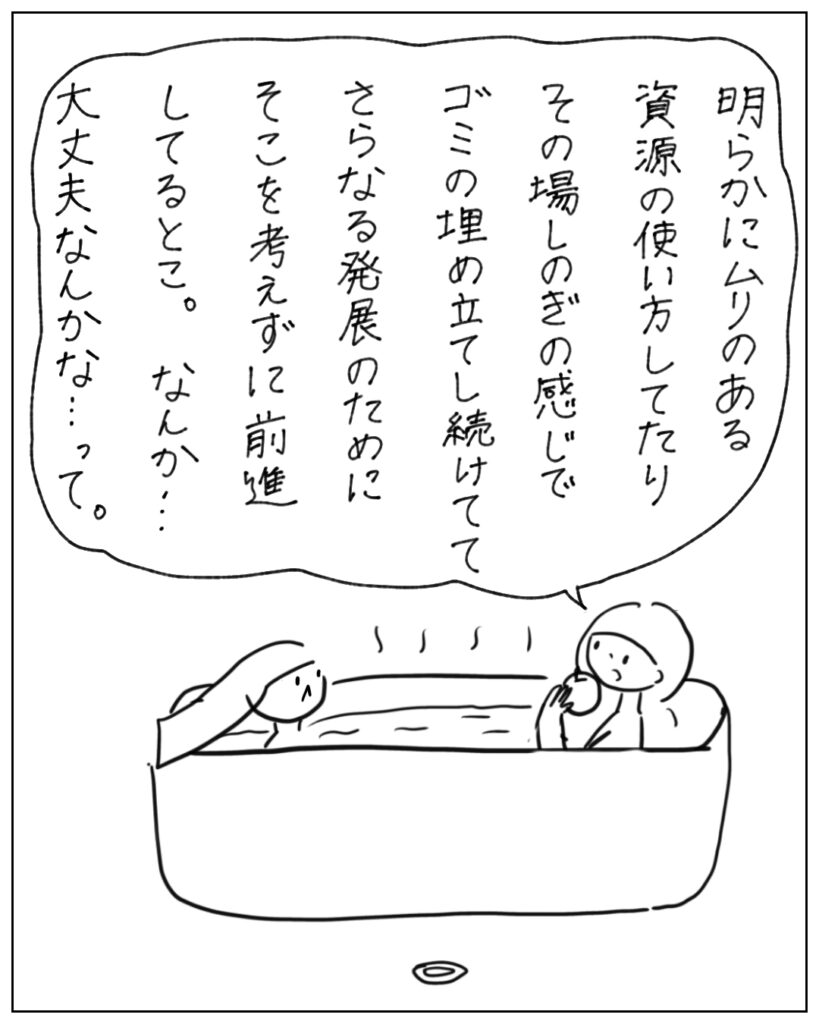 明らかにムリのある
資源の使い方してたり
その場しのぎの感じで
ゴミの埋め立てし続けてて
さらなる発展のために
そこを考えずに前進
してるとこ。なんか…
大丈夫なんかな…って。